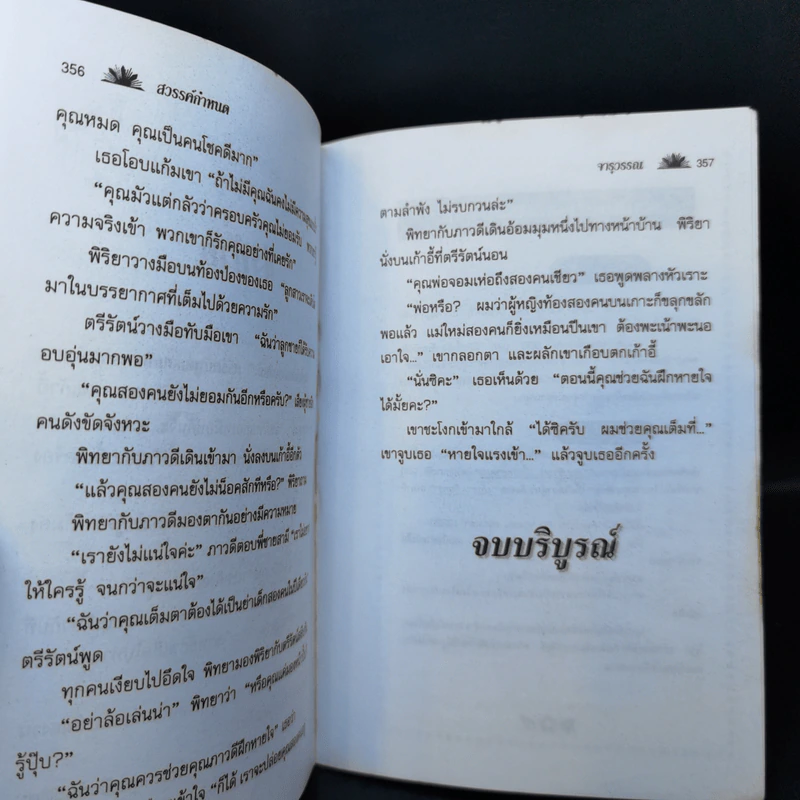 356 สวรรค์กำหนด
คุณหมด คุณเป็นคนโชคดีมาก”
เธอโอบแก้มเขา “ถ้าไม่มีคุณฉันคงไม่มีความ
“คุณมัวแต่กลัวว่าครอบครัวคุณไม่ยอมรับ
ความจริงเข้า พวกเขาก็รักคุณอย่างที่เคยรัก”
พิริยาวางมือบนท้องป่องของเธอ
มาในบรรยากาศที่เต็มไปด้วยความรัก”
ตรีรัตน์วางมือทับมือเขา
อบอุ่นมากพอ”
“คุณสองคนยังไม่ยอมกันอีกหรือครับ?”
คนดังขัดจังหวะ
พิทยากับภาวดีเดินเข้ามา นั่งลงบนเก้าอี้อีกตัว
“แล้วคุณสองคนยังไม่น็อคสักทีหรือ?”
พิทยากับภาวดีมองตากันอย่างมีความหมาย
“เรายังไม่แน่ใจค่ะ” ภาวดีตอบพี่ชายสามี
ให้ใครรู้ จนกว่าจะแน่ใจ”
“ฉันว่าคุณเต็มตาต้องได้เป็นย่าเด็กสองคนใน
ตรีรัตน์พูด
ทุกคนเงียบไปอึดใจ พิทยามองพิริยากับตรีรัตน์
“อย่าล้อเล่นน่า” พิทยาว่า
รู้ปุ๊บ?”
“ฉันว่าคุณควรช่วยคุณภาวดีฝึกหายใจ”
“ก็ได้ เราจะปล่อยคุณ
จารุวรรณ 357
ตามลำพัง ไม่รบกวนล่ะ”
พิทยากับภาวดีเดินอ้อมมุมหนึ่งไปทางหน้าบ้าน พิริยา
นั่งบนเก้าอี้ที่ตรีรัตน์นอน
“คุณพ่อจอมเห่อถึงสองคนเชียว” เธอพูดพลางหัวเราะ
“พ่อหรือ? ผมว่าผู้หญิงท้องสองคนบนเกาะก็ขลุกขลัก
พอแล้ว แม่ใหม่สองคนก็ยิ่งเหมือนปีนเขา ต้องพะเน้าพะนอ
เอาใจ...” เขากลอกตา และผลักเขาเกือบตกเก้าอี้
“นั่นซิคะ” เธอเห็นด้วย “ตอนนี้คุณช่วยฉันฝึกหายใจ
ได้มั้ยคะ?”
เขาชะโงกเข้ามาใกล้ “ได้ซิครับ ผมช่วยคุณเต็มที่...”
เขาจูบเธอ “หายใจแรงเข้า...” แล้วจูบเธออีกครั้ง
จบบริบูรณ์